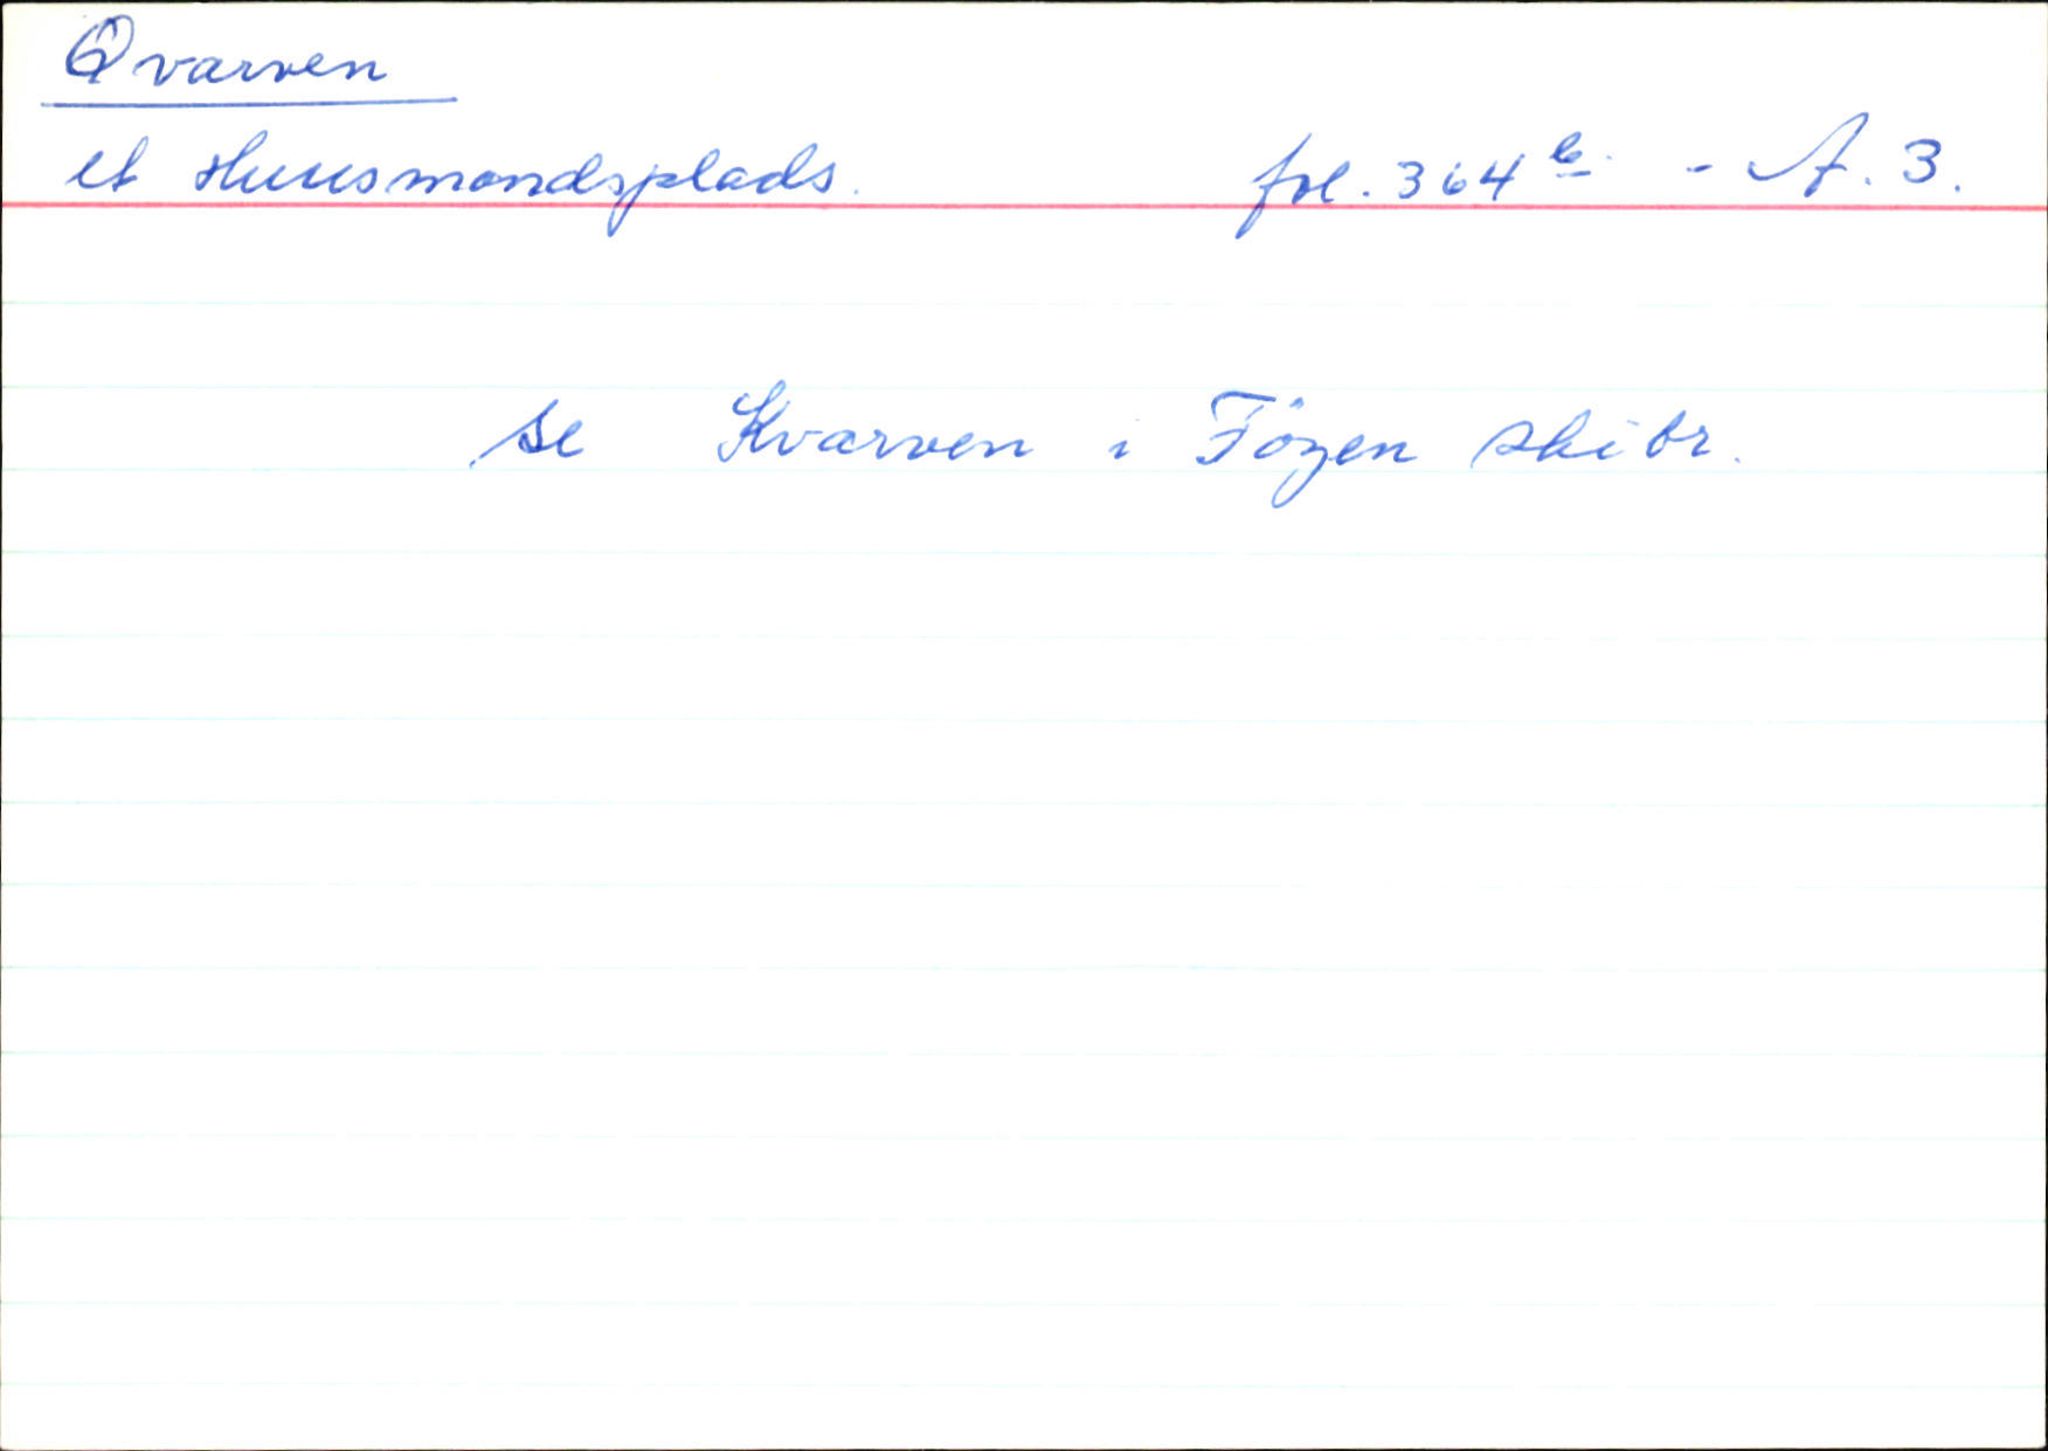 Qvarven
et Huusmandsplads. fol. 364 b. - A. 3.
se Kvarven i Föyen skibr.